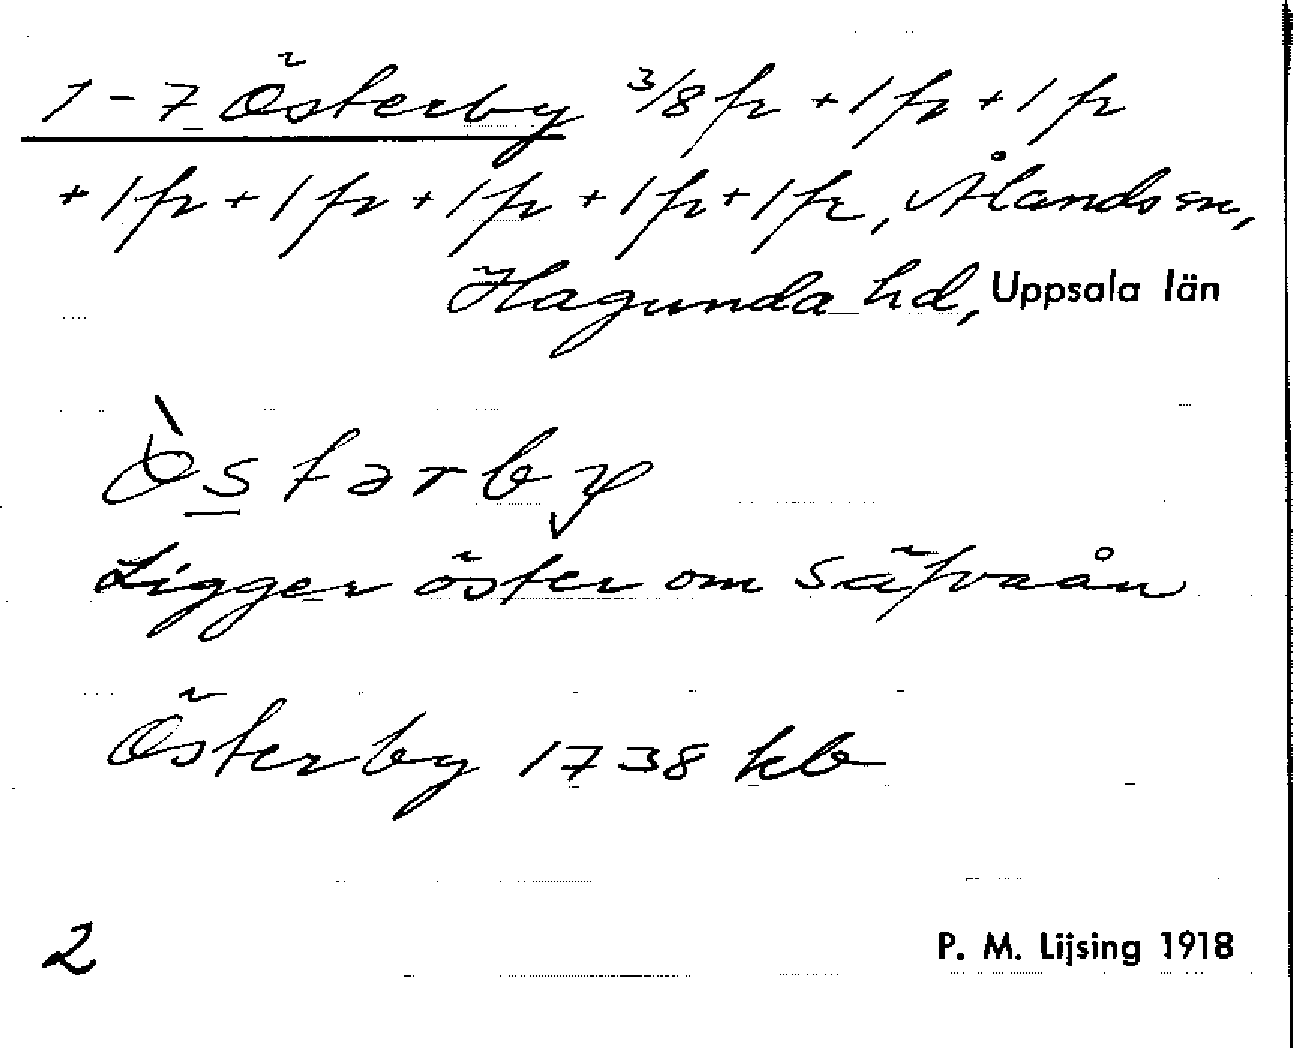 1-7 Österby 3/8 fr + 1 fr + 1 fr
+ 1 fr + 1 fr + 1 fr + 1 fr + 1 fr, Ålands sn,
Hagunda hd, Uppsala län
Ligger öster om Säfvaån
Österby 1738 kb
2
P. M. Lijsing 1918